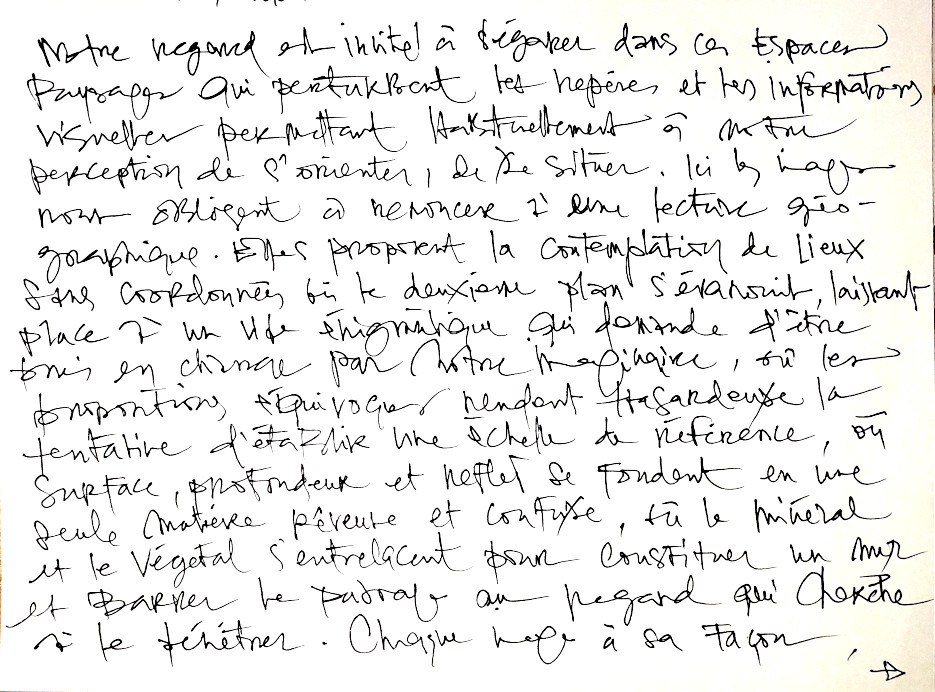 Notre regard est invité à s'égarer dans ces Espaces
Paysages qui perturbent les repères et les informations
visuelles permettant Habituellement à notre
perception de s'orienter, de se situer. Ici les images
nous obligent à renoncer à une lecture géo-
graphique. Elles proposent la contemplation de Lieux
Sans coordonnées où le deuxième plan s'évanouit, laissant
place à un vide énigmatique qui demande d'être
pris en charge par notre Imaginaire, où les
propositions équivoques rendent Hasardeuse la
tentative d'établir une échelle de référence, où
Surface, profondeur et reflet se Fondent en une
seule matière rêveuse et confuse, où le minéral
et le Végétal s'entrelacent pour constituer un mur
et BARRER le passage au regard qui Cherche
à le pénétrer. Chaque image à sa Façon